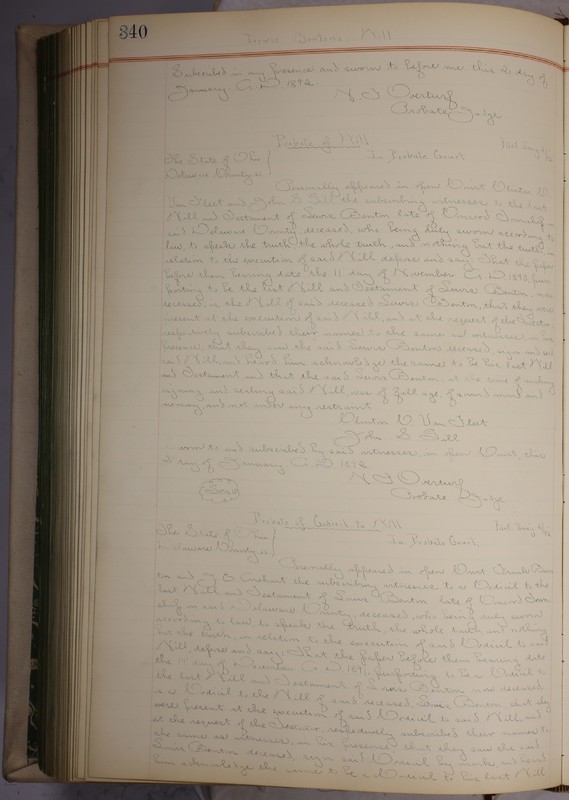 340
Bentons Will
Subscribed in my presence and sworn to before me this day of
January A. D. 1892
Overturf
Probate Judge
Probate of Will
The State of Ohio
In Probate Court
Delaware County ss
Personally appeared in open Court Clinton D
Van Fleet and John S. Gill the subscribing witnesses to the last
Will and Testament of Benton late of
said Delaware County, deceased, who being duly sworn according to
law, to speak the truth the whole truth, and nothing but the truth, in
relation to the execution of said Will depose and say: That the paper
before them bearing date the 11 day of November A. D. 1890, pur
porting to be the last Will and Testament of Benton, now
deceased, is the Will of said deceased Benton, that they were
present at the execution of said Will, and at the request of the Testator
respectively subscribed their names to the same as witnesses in his
presence, that they saw the said Benton deceased, sign and seal
said Will, and heard him acknowledge the same to be his last Will
and Testament and that the said Benton, at the time of making
signing and sealing said Will, was of full age, of sound mind and
memory, and not under any restraint
Clinton D Van Fleet
John S. Gill
Sworn to and subscribed by said witnesses, in open Court, this
day of January A. D. 1892
Overturf
Probate Judge
Seal
Probate of Codicil to Will
The State of Ohio
In Probate Court.
Delaware County ss
Personally appeared in open Court
ton and the subscribing witnesses to a Codicil to the
last Will and Testament of Benton late of
ship in said Delaware County, deceased, who being duly sworn
according to law, to speak the truth, the whole truth and nothing
but the truth, in relation to the execution of said Codicil to said
Will, depose and say: That the paper before them bearing date
the day of A. D. purporting to be a Codicil to
the last Will and Testament of Benton now deceased
is a Codicil to the Will of said deceased, Benton that they
were present at the execution of said Codicil to said Will, and
at the request of the Testator, respectively subscribed their names to
the same as witnesses, in his presence that they saw the said
Benton deceased sign said Codicil by mark, and heard
him acknowledge the same to be a Codicil to his last Will